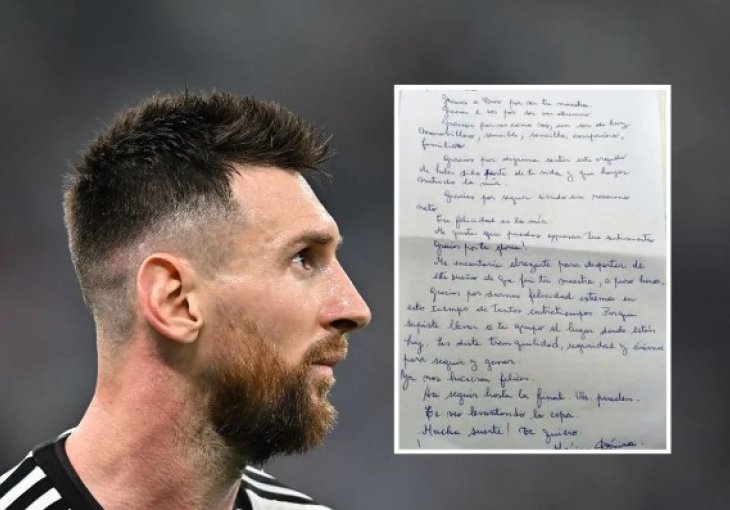 Gracias a Dios por ser tu maestra.
Gracias a vos por ser mi alumno
Gracias por ser como sos, un ser de luz
maravilloso, sensible, sencillo, compasivo,
familiero.
Gracias por dejarme sentir este orgullo
de haber sido parte de tu vida y que hayas
construido la mía.
Gracias por seguir siendo un rosarino
neto
Tu felicidad es la mía.
Me gusta que puedas expresar tus sentimientos
Gracias por tu gloria!
Me encantaría abrazarte para despertar de
este sueño de que fui tu maestra, a puro honor.
Gracias por darnos felicidad extrema en
este tiempo de tantos contratiempos. Porque
supiste llevar a tu grupo al lugar donde están
hoy. Les diste tranquilidad, seguridad y ánimo
para seguir y ganar.
Ya nos hicieron felices.
A seguir hasta la final. Uds. pueden.
Te veo levantando la copa.
Mucha suerte! Te quiero.
Mónica